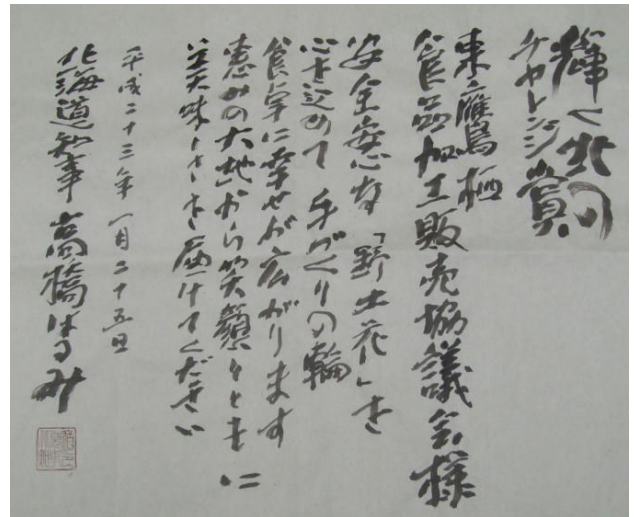 輝く北の
チャレンジ賞
東鷹栖
食品加工販売協議会様
安全安心な「野土花」を
心を込めて 手づくりの輪
食卓に幸せが広がります
恵みの大地から笑顔とともに
美味しさを届けてください
平成二十三年 一月二十五日
北海道知事 高橋はるみ